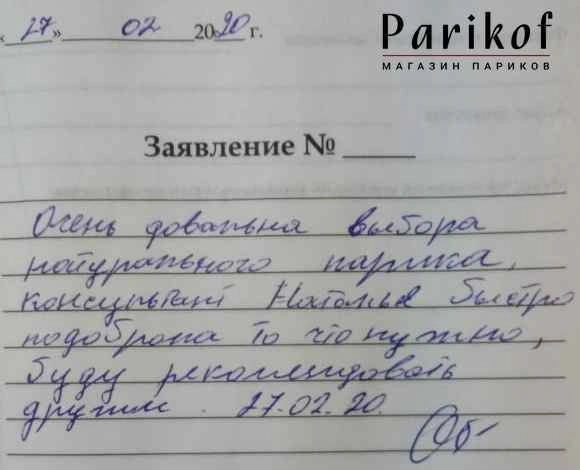 Parikof
МАГАЗИН ПАРИКОВ
«27» 02 2020 г.
Заявление №
Очень довольна выбора
натурального парика,
консультант Наталья быстро
подобрала то что нужно,
буду рекомендовать
другим. 27.02.20.